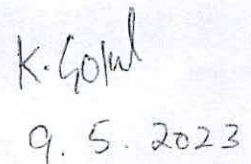 K. Gokul
9. 5. 2023